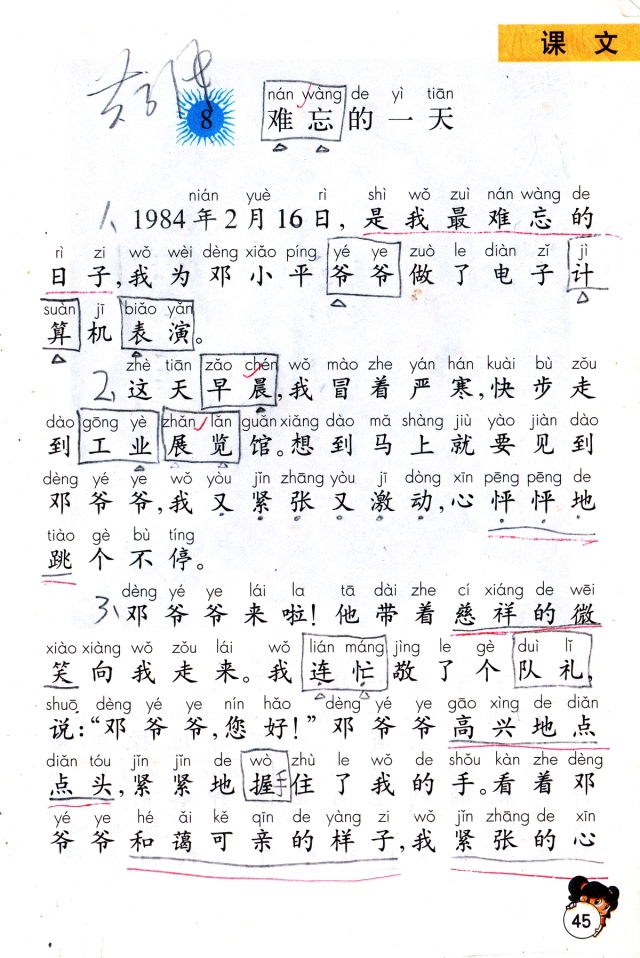 课 文
nán wàng de yì tiān
8 难 忘 的 一 天
nián yuè rì shì wǒ zuì nán wàng de
1、1984年2月16日，是我最难忘的
rì zi wǒ wèi dèng xiǎo píng yé ye zuò le diàn zǐ jì
日子，我为邓小平爷爷做了电子计
suàn jī biǎo yǎn
算机表演。
zhè tiān zǎo chén wǒ mào zhe yán hán kuài bù zǒu
2、这天早晨，我冒着严寒，快步走
dào gōng yè zhǎn lǎn guǎn xiǎng dào mǎ shàng jiù yào jiàn dào
到工业展览馆。想到马上就要见到
dèng yé ye wǒ yòu jǐn zhāng yòu jī dòng xīn pēng pēng de
邓爷爷，我又紧张又激动，心怦怦地
tiào gè bù tíng
跳个不停。
dèng yé ye lái la tā dài zhe cí xiáng de wēi
3、邓爷爷来啦！他带着慈祥的微
xiào xiàng wǒ zǒu lái wǒ lián máng jìng le gè duì lǐ
笑向我走来。我连忙敬了个队礼，
shuō dèng yé ye nín hǎo dèng yé ye gāo xìng de diǎn
说：“邓爷爷，您好！”邓爷爷高兴地点
diǎn tóu jǐn jǐn de wò zhù le wǒ de shǒu kàn zhe dèng
点头，紧紧地握手住了我的手。看着邓
yé ye hé ǎi kě qīn de yàng zi wǒ jǐn zhāng de xīn
爷爷和蔼可亲的样子，我紧张的心
45